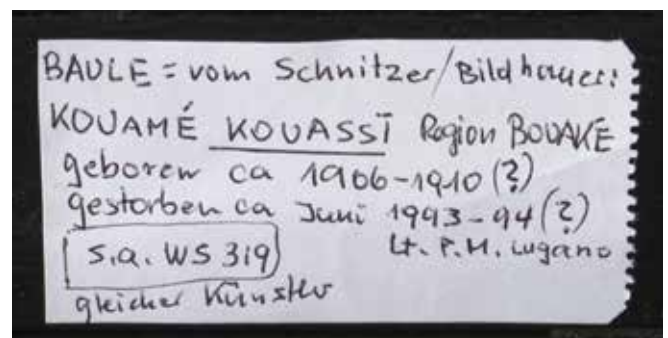 BAULE = vom Schnitzer/Bildhauer:
KOUAMÉ KOUASSI Region BOUAKE
geboren ca 1906-1910 (?)
gestorben ca Juni 1993-94 (?)
s.a. WS 319 Lt. P.M. Lugano
gleicher Künstler